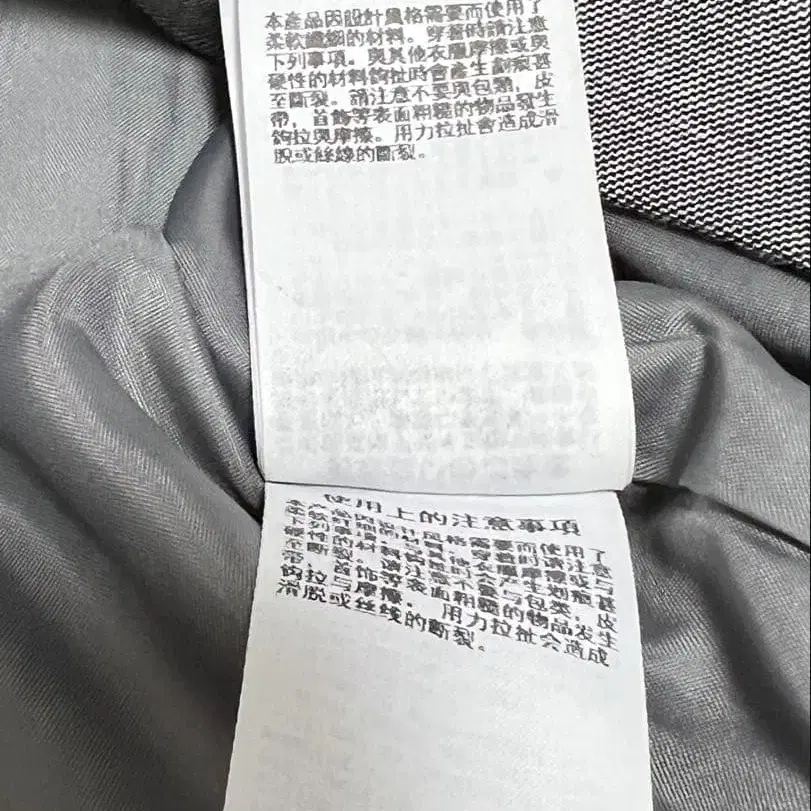 本產品因設計風格需要而使用了
柔軟纖細的材料。穿著時請注意
下列事項。與其他衣服摩擦或與
硬性的材料鉤扯時會產生劃痕甚
至斷裂。請注意不要與包類，皮
帶，首飾等表面粗糙的物品發生
鉤拉與摩擦。用力拉扯會造成滑
脫或絲線的斷裂。
使用上的注意事項
本产品因设计风格需要而使用了
柔软纤细的材料。穿着时请注意
下列事項。与其他衣服摩擦或与
硬性的材料
会产生划痕甚
至断裂。请注意不要与包类，皮
带，首饰等表面粗糙的物品发生
钩拉与摩擦。用力拉扯会造成
滑脱或丝线的断裂。